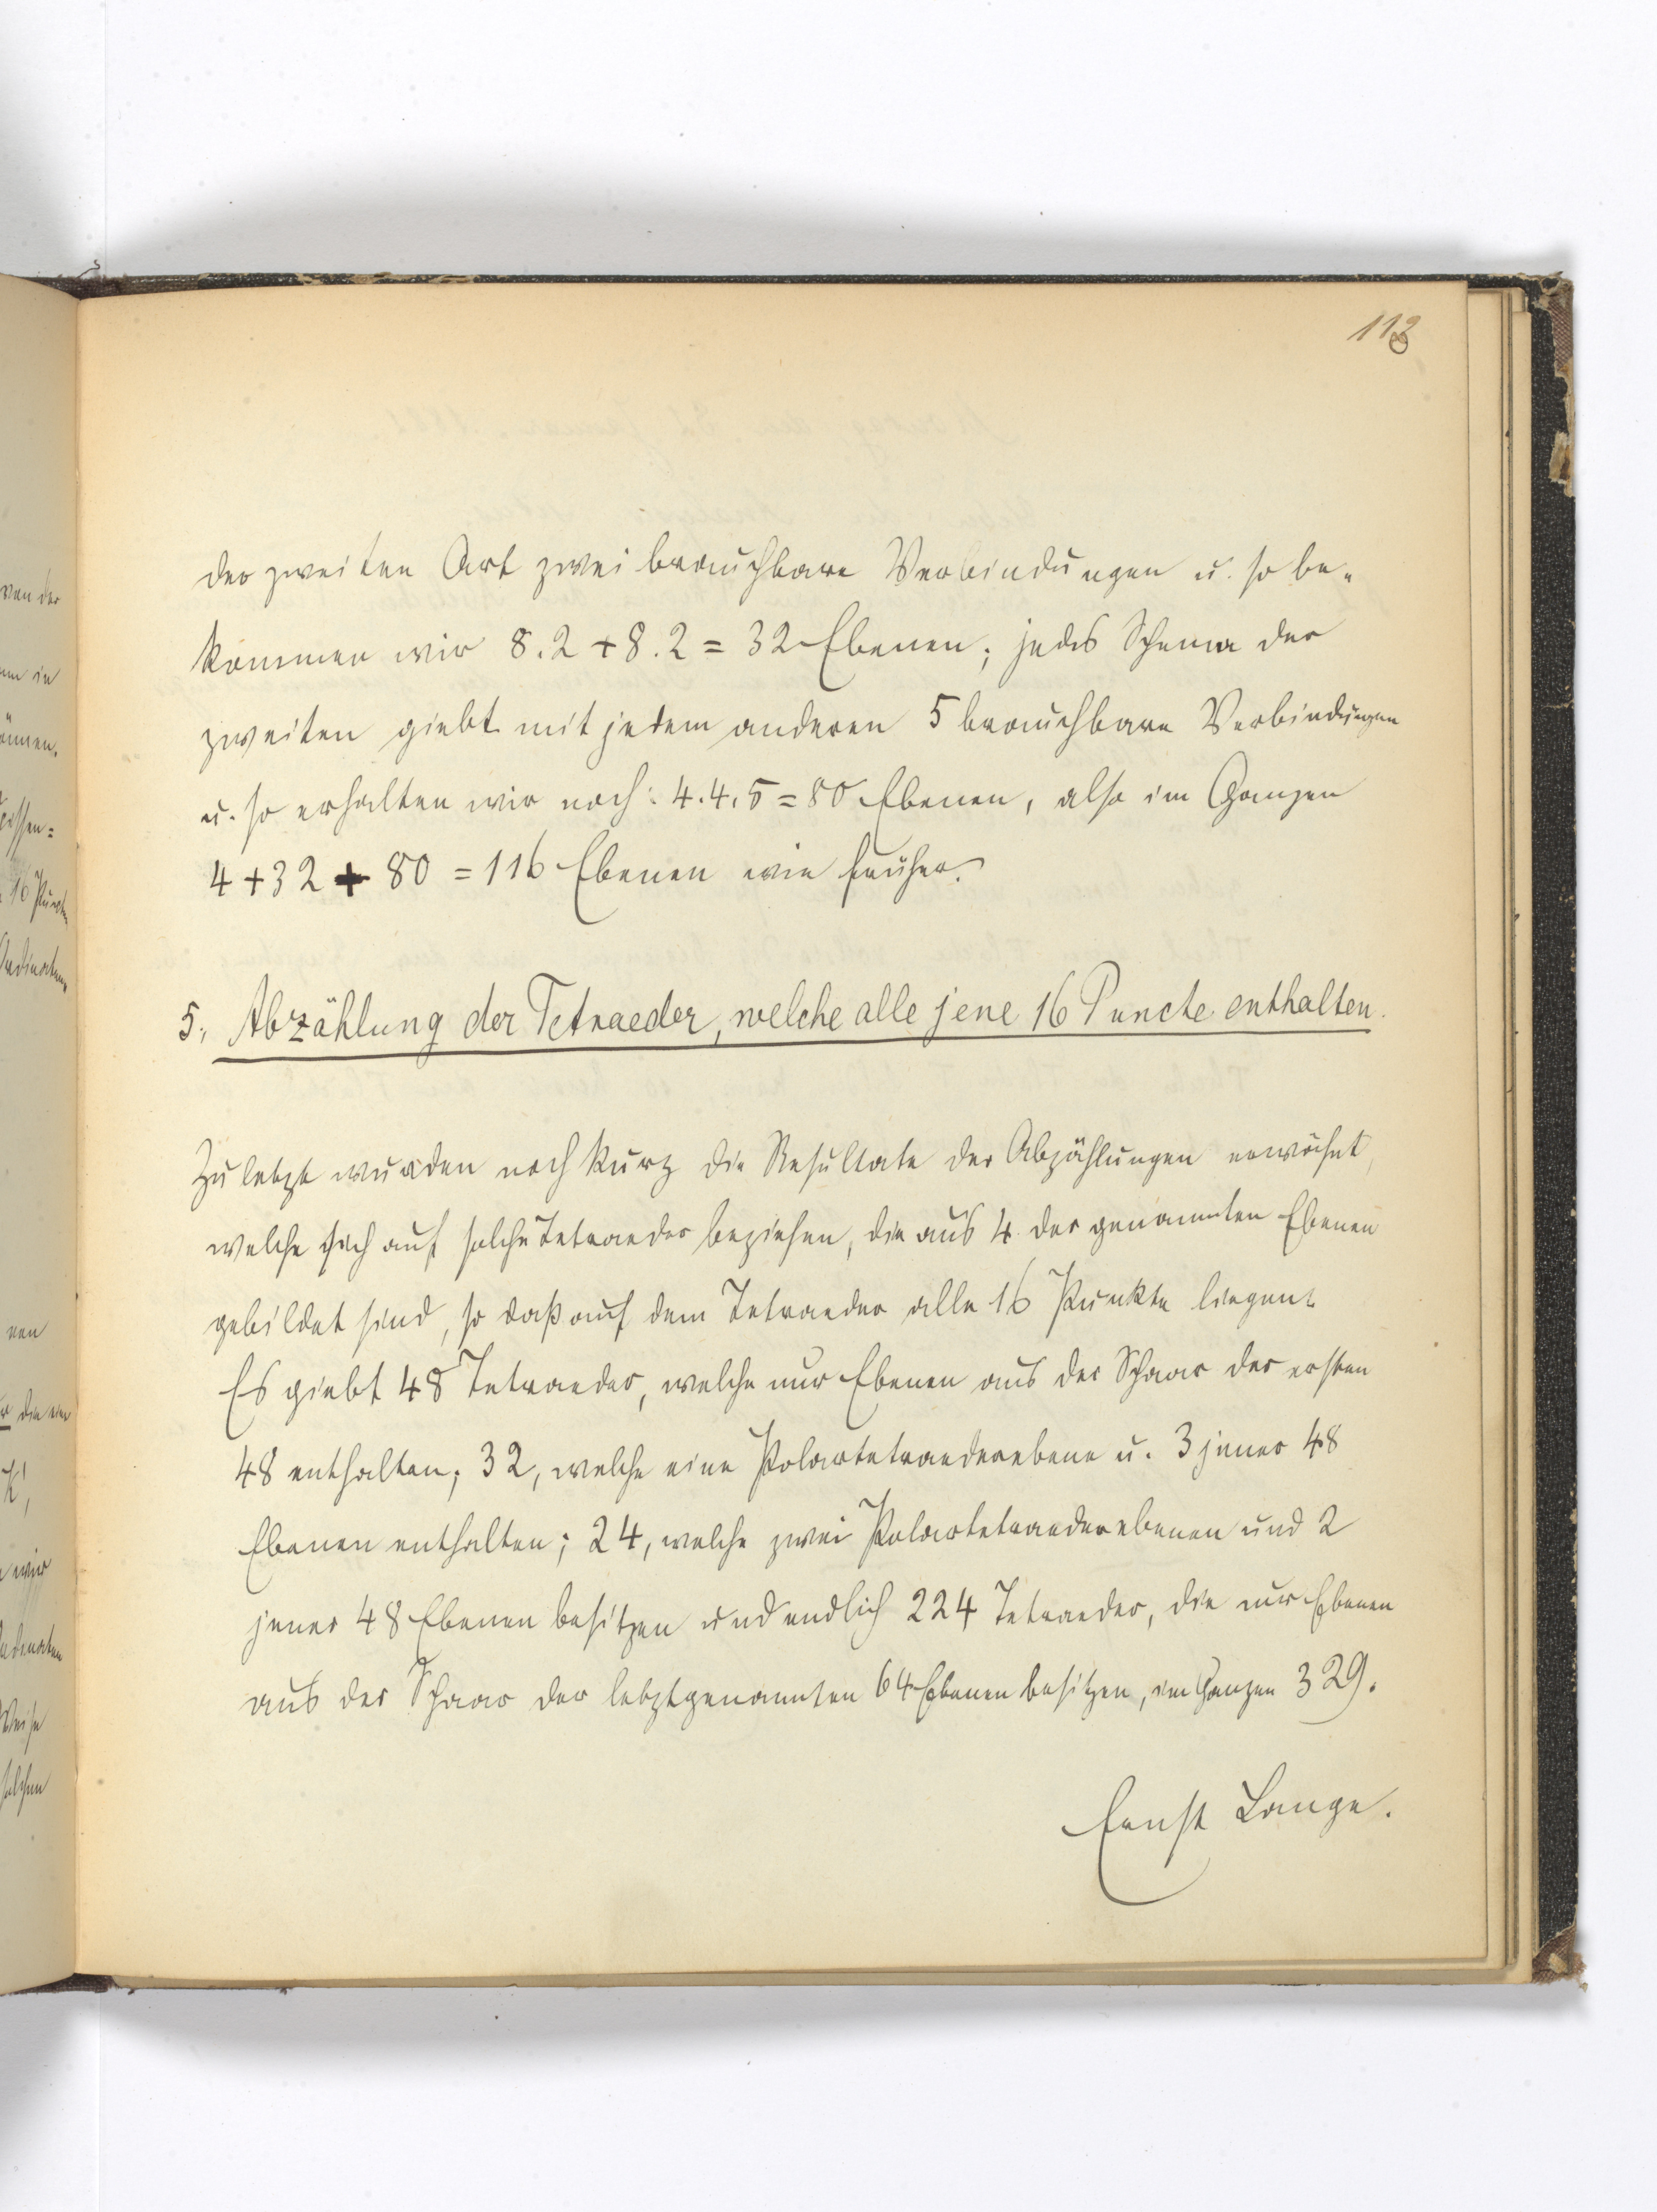 113
der zweiten Art zwei brauchbare Verbindungen u. so be-
kommen wir 8.2 + 8.2 = 32 Ebenen; jedes Schema der
zweiten giebt mit jedem anderen 5 brauchbare Verbindungen
u. so erhalten wir noch: 4.4.5 = 80 Ebenen, also im Ganzen
4 + 32 + 80 = 116 Ebenen wie früher.
5. Abzählung der Tetraeder, welche alle jene 16 Puncte enthalten.
Zuletzt wurden noch kurz die Resultate der Abzählungen erwähnt,
welche sich auf solche Tetraeder beziehen, die aus 4 der genannten Ebenen
gebildet sind, so daß auf dem Tetraeder alle 16 Punkte liegen.
Es giebt 48 Tetraeder, welche nur Ebenen aus der Schaar der ersten
48 enthalten; 32, welche eine Polartetraederebene u. 3 jener 48
Ebenen enthalten; 24, welche zwei Polartetraederebenen und 2
jener 48 Ebenen besitzen und endlich 224 Tetraeder, die nur Ebenen
aus der Schaar der letztgenannten 64 Ebenen besitzen, im Ganzen 329.
Ernst Lange.